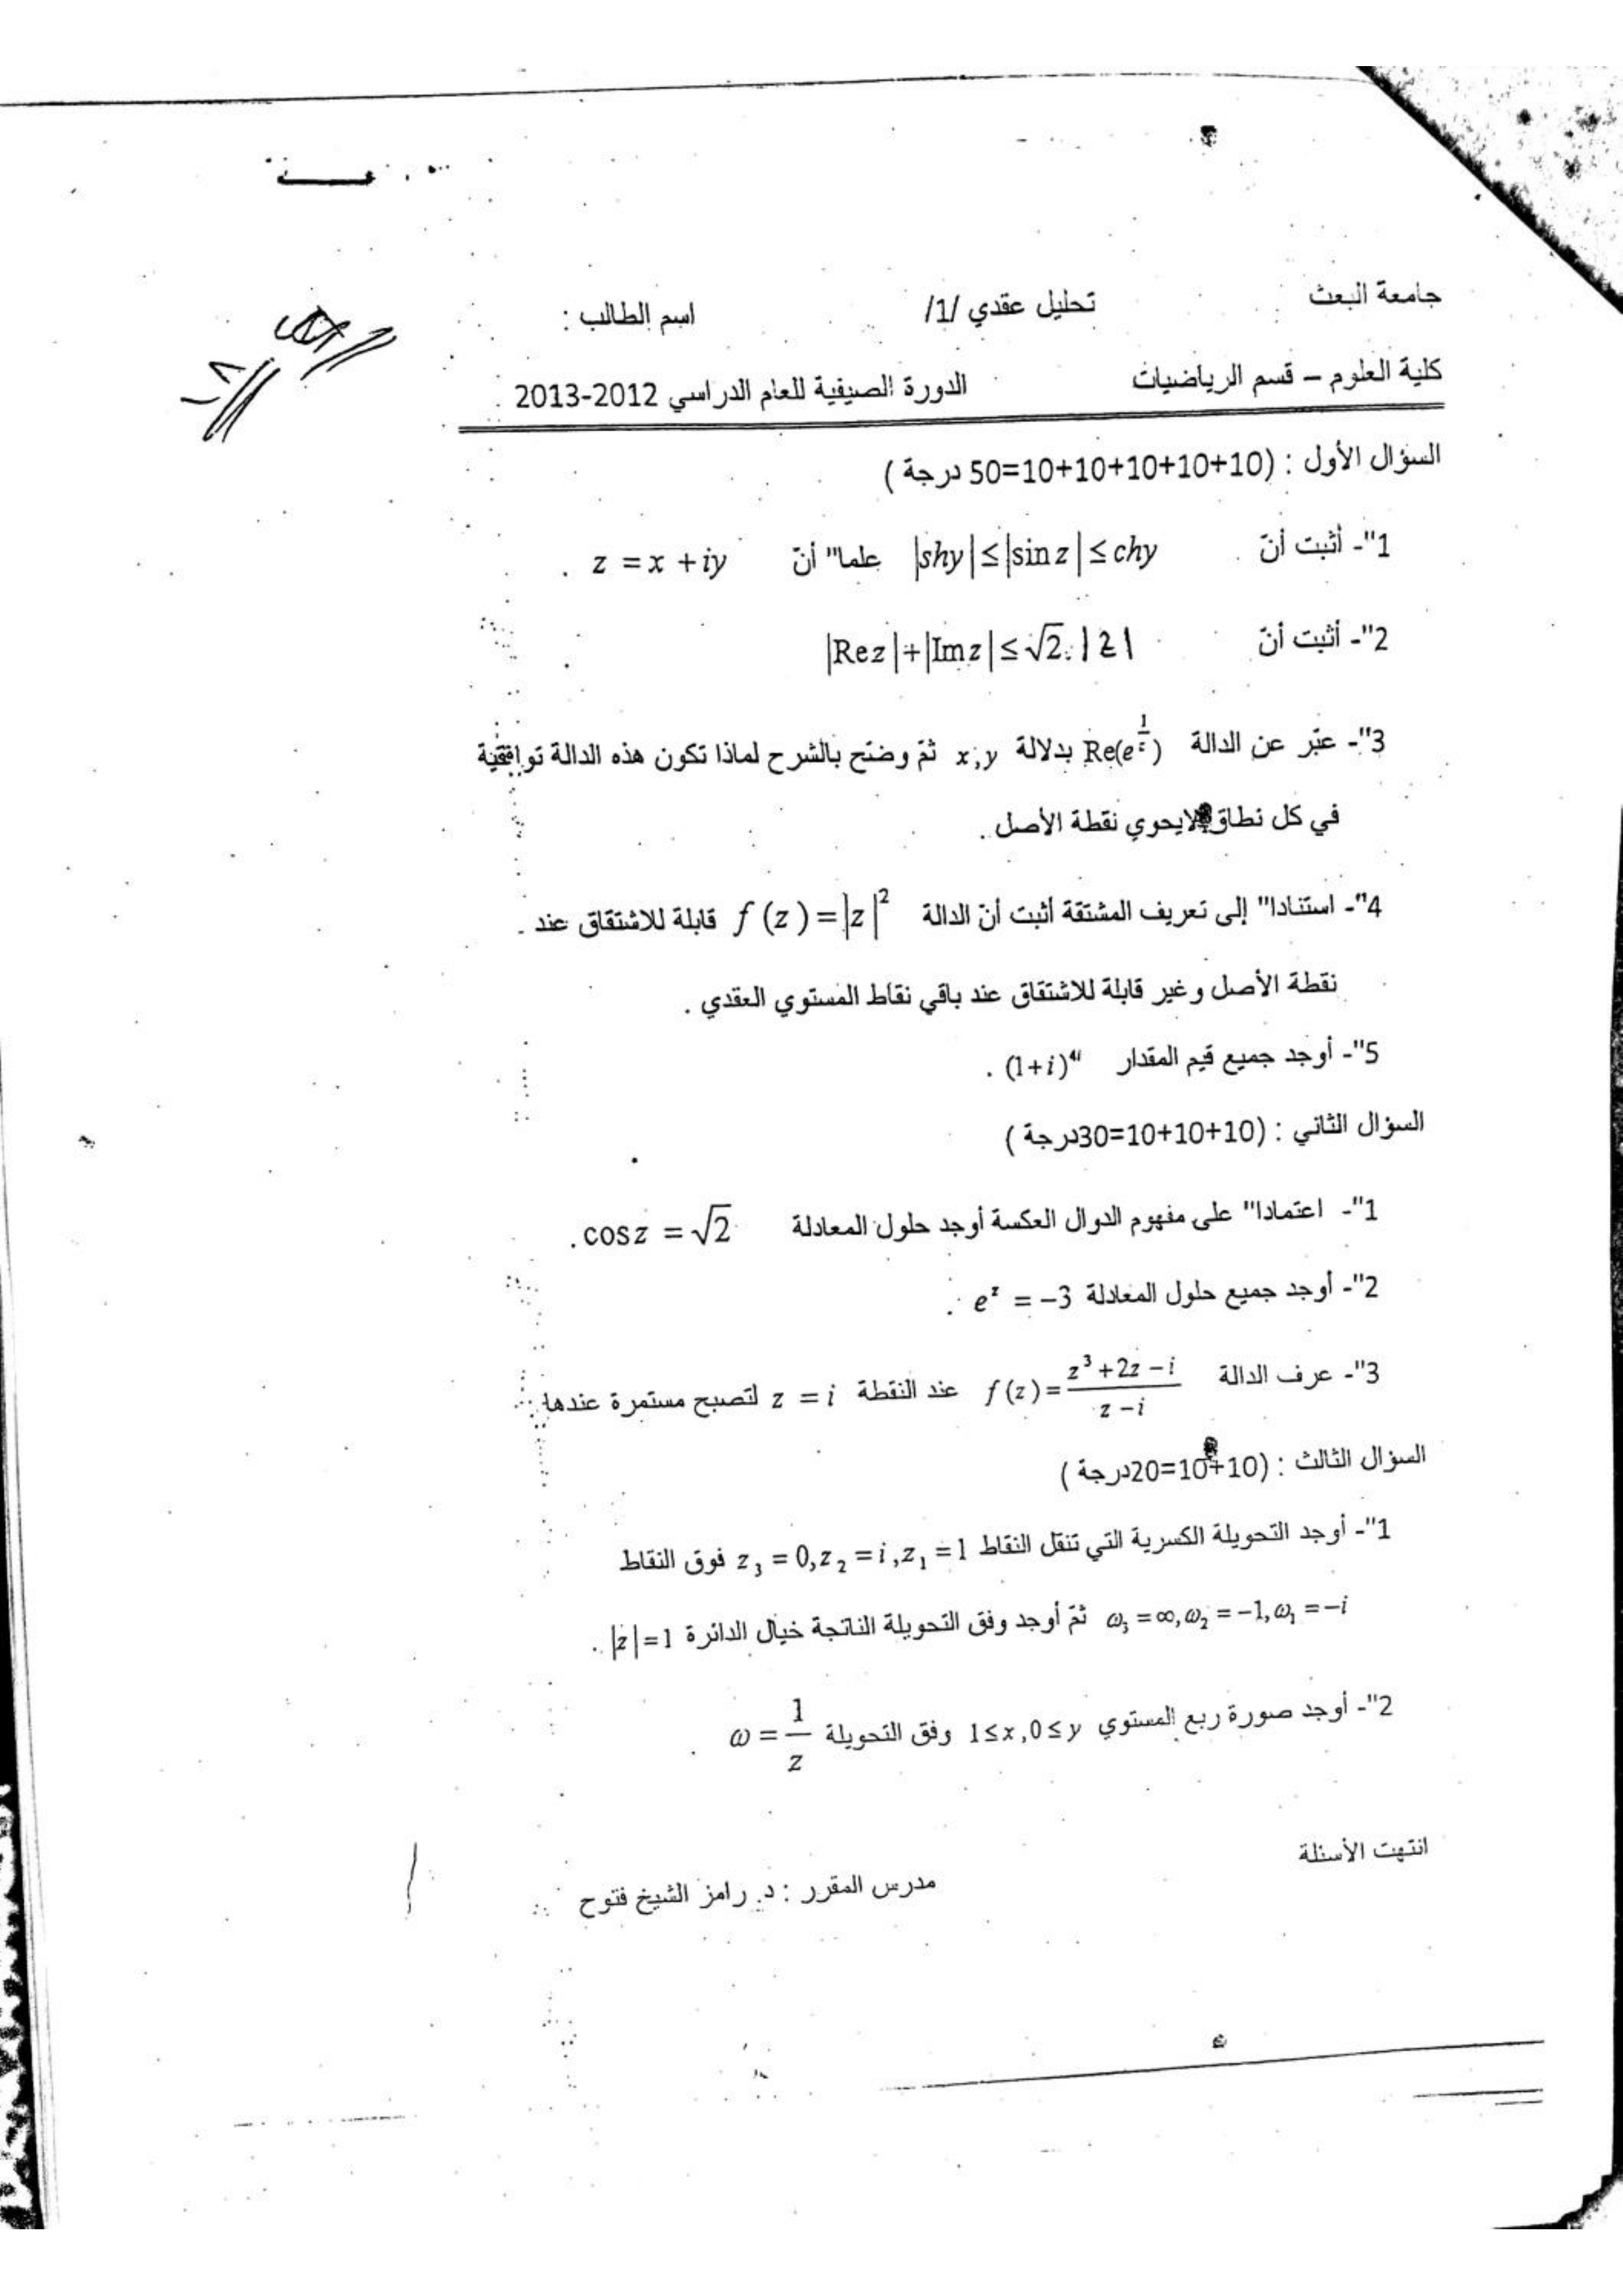 جامعة البعث تحليل عقدي /1/ اسم الطالب :
كلية العلوم – قسم الرياضيات الدورة الصيفية للعام الدراسي 2012-2013
السؤال الأول : (10+10+10+10+10=50 درجة )
1"- أثبت أنّ |shy| ≤ |sin z| ≤ chy علما" أنّ z = x + iy .
2"- أثبت أنّ |Re z| + |Im z| ≤ √2.|z|
3"- عبّر عن الدالة Re(e^{1/z}) بدلالة x,y ثمّ وضّح بالشرح لماذا تكون هذه الدالة توافقية
في كل نطاق لايحوي نقطة الأصل .
4"- استنادا" إلى تعريف المشتقة أثبت أنّ الدالة f(z) = |z|² قابلة للاشتقاق عند
نقطة الأصل وغير قابلة للاشتقاق عند باقي نقاط المستوي العقدي .
5"- أوجد جميع قيم المقدار (1+i)^{4i} .
السؤال الثاني : (10+10+10=30درجة )
1"- اعتمادا" على مفهوم الدوال العكسة أوجد حلول المعادلة cos z = √2 .
2"- أوجد جميع حلول المعادلة e^z = −3 .
3"- عرف الدالة f(z) = (z³+2z−i)/(z−i) عند النقطة z = i لتصبح مستمرة عندها
السؤال الثالث : (10+10=20درجة )
1"- أوجد التحويلة الكسرية التي تنقل النقاط z₃ = 0, z₂ = i, z₁ = 1 فوق النقاط
ω₃ = ∞, ω₂ = −1, ω₁ = −i ثمّ أوجد وفق التحويلة الناتجة خيال الدائرة |z| = 1 .
2"- أوجد صورة ربع المستوي 1 ≤ x , 0 ≤ y وفق التحويلة ω = 1/z .
انتهت الأسئلة
مدرس المقرر : د. رامز الشيخ فتوح